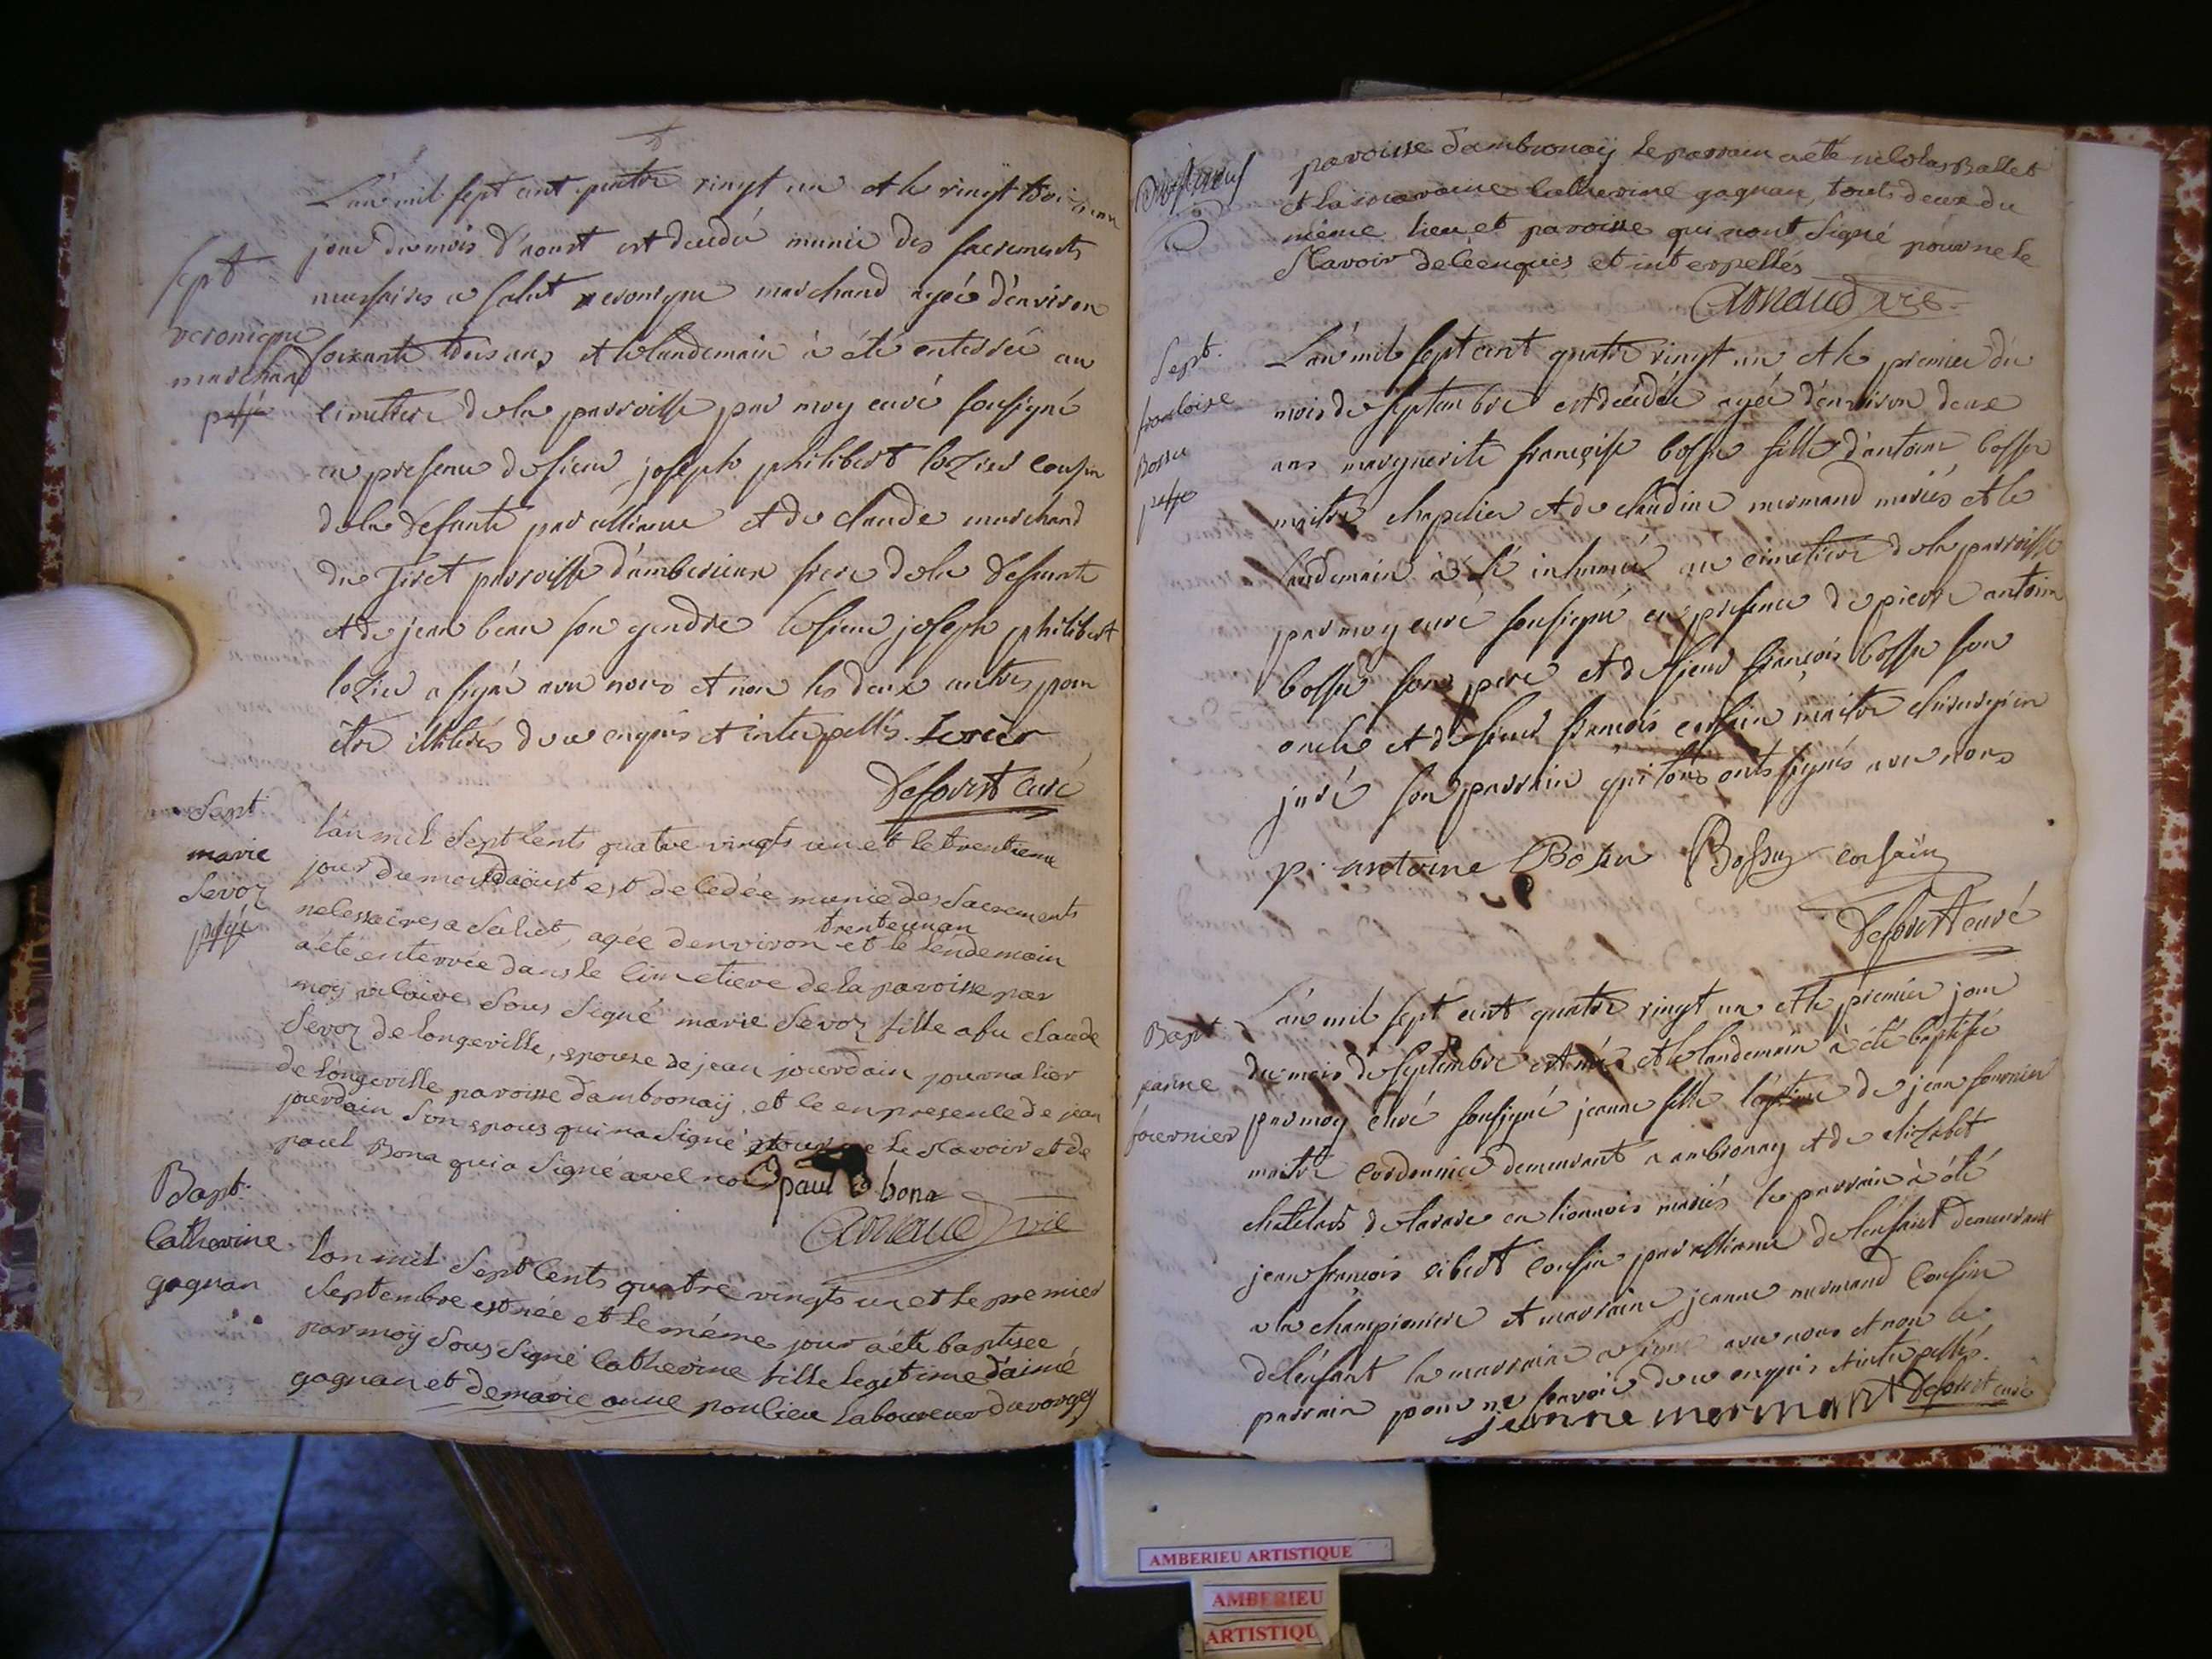 L'an mil sept cent quatre vingt un et le vingt troisieme
jour du mois d'aoust est decedée munie des sacrements
necessaires a salut veronique marchand agée d'environ
soixante trois ans et le landemain à été enterrée au
cimetiere de la parroisse par moy curé sousigné
en presence de sieur joseph philibert lozier cousin
de la defunte par alliance et de claude marchand
du Tiret parroisse d'amberieux frere de la defunte
et de jean beau son gendre le sieur joseph philibert
lozier a signé avec nous et non les deux autres pour
être illitérés de ce enquis et interpellés. Lozier
Deforest curé
Sept
veronique
marchand
Sept.
marie
Sevoz
l'an mil Sept Cents quatre vingts un et le trentieme
jour du mois d'aoust est decedée munie des Sacrements
necessaires a Salut, agée d'environ trente un an et le lendemain
a été enterrée dans le Cimetiere de la paroisse par
moy vicaire Sous Signé marie Sevoz fille a fu claude
Sevoz de longeville, epouse de jean jourdain journalier
de longeville paroisse d'ambronaÿ, et le en presence de jean
jourdain Son epoux qui na Signé pour ne le Scavoir et de
paul Bona qui a Signé avec nous paul bona
Arnaud vic
Bapt.
Catherine
gagnan
l'an mil Sept Cents quatre vingts un et le premier
Septembre est née et le même jour a été baptisée
par moÿ Sous Signé Catherine fille legitime d'aimé
gagnan et de marie anne poulieu Laboureur du vorgey
Dixneuf
paroisse d'ambronaÿ le parrain a été nicolas Ballet
et la maraine Catherine gagnan, touts deux du
même lieu et paroisse qui nont Signé pour ne le
Scavoir de ce enquis et interpellés
Arnaud vic
Sept.
francoise
Bossu
L'an mil sept cent quatre vingt un et le premier du
mois de septembre est decedée agée d'environ deux
ans marguerite françoise bossu fille d'antoine bossu
maitre chapelier et de claudine mermand mariés et le
landemain à été inhumée au cimetiere de la parroisse
par moy curé sousigné en presence de pierre antoine
bossu son pere et de sieur françois bossu son
oncle et de sieur françois corsain maitre chirurgien
juré son parrain qui tous ont signés avec nous
p. antoine Bossu Bossu corsain
Deforest curé
Bapt
jeanne
fournier
L'an mil sept cent quatre vingt un et le premier jour
du mois de septembre est née et le landemain à été baptisée
par moy curé sousigné jeanne fille légitime de jean fournier
maitre cordonnier demeurant a ambronay et de elizabet
chatelard de tarare en lionnois mariés le parrain à été
jean françois sibert cousin par alliance de l'enfant demeurant
a la championiere et marraine jeanne mermand cousine
de l'enfant la marraine a signé avec nous et non le
parrain pour ne savoir de ce enquis et interpellés.
jeanne mermant Deforest curé
AMBERIEU ARTISTIQUE
AMBERIEU
ARTISTIQU